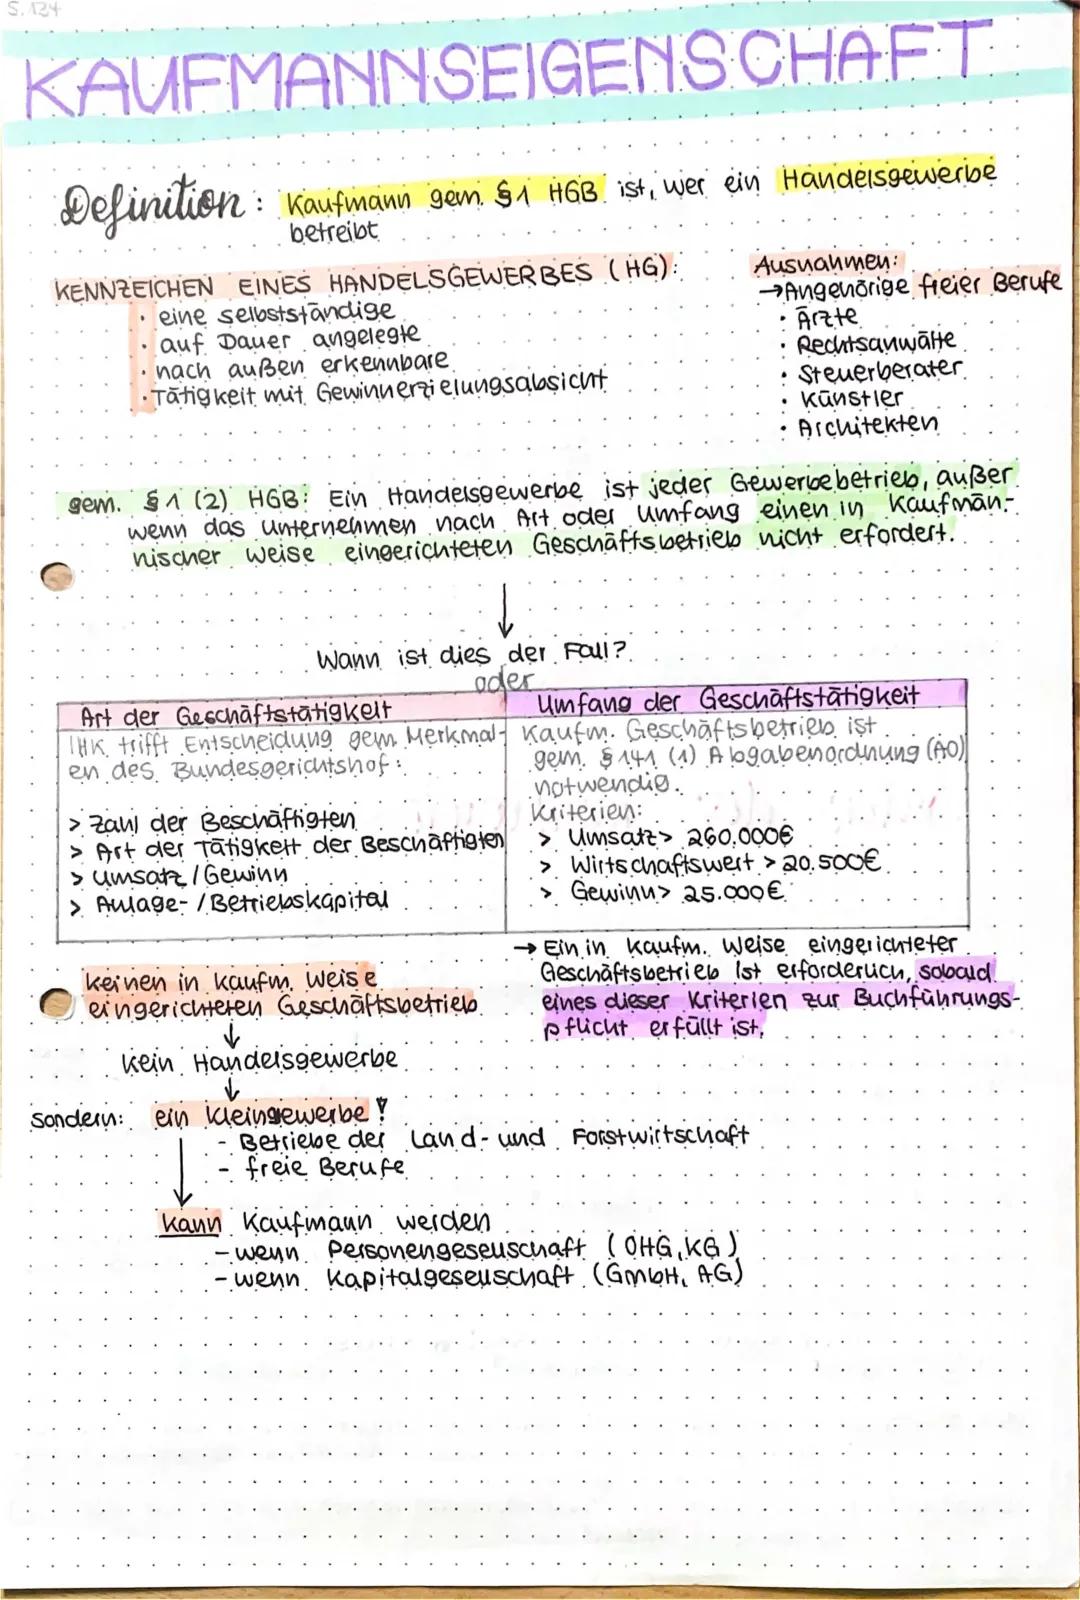 S. 124
KAUFMANNSEIGENSCHAFT
Definition: Kaufmann gem. §1 HGB ist, wer ein Handelsgewerbe
betreibt
KENNZEICHEN EINES HANDELSGEWERBES (HG):
· eine selbstständige
· auf Dauer angelegte
· nach außen erkennbare
· Tätigkeit mit Gewinnerzielungsabsicht
Ausnahmen:
→ Angehörige freier Berufe
· Ärzte
· Rechtsanwälte
· Steuerberater
· Künstler
· Architekten
gem. §1 (2) HGB: Ein Handelsgewerbe ist jeder Gewerbebetrieb, außer
wenn das Unternehmen nach Art oder Umfang einen in Kaufmän-
nischer Weise eingerichteten Geschäftsbetrieb nicht erfordert.
↓
Wann ist dies der Fall?
oder
Art der Geschäftstätigkeit
IHK trifft Entscheidung gem. Merkmal-
en des Bundesgerichtshof:
> Zahl der Beschäftigten
> Art der Tätigkeit der Beschäftigten
> Umsatz / Gewinn
> Anlage- / Betriebskapital
Umfang der Geschäftstätigkeit
Kaufm. Geschäftsbetrieb ist
gem. §141 (1) Abgabenordnung (AO)
notwendig.
Kriterien:
> Umsatz > 260.000€
> Wirtschaftswert > 20.500€
> Gewinn > 25.000€
→ Ein in Kaufm. Weise eingerichteter
Geschäftsbetrieb ist erforderlich, sobald
eines dieser Kriterien zur Buchführungs-
pflicht erfüllt ist.
keinen in kaufm. Weise
eingerichteten Geschäftsbetrieb
↓
kein Handelsgewerbe
↓
sondern: ein Kleingewerbe!
- Betriebe der Land- und Forstwirtschaft
- freie Berufe
↓
kann Kaufmann werden
- wenn Personengesellschaft (OHG, KG)
- wenn Kapitalgesellschaft (GmbH, AG)